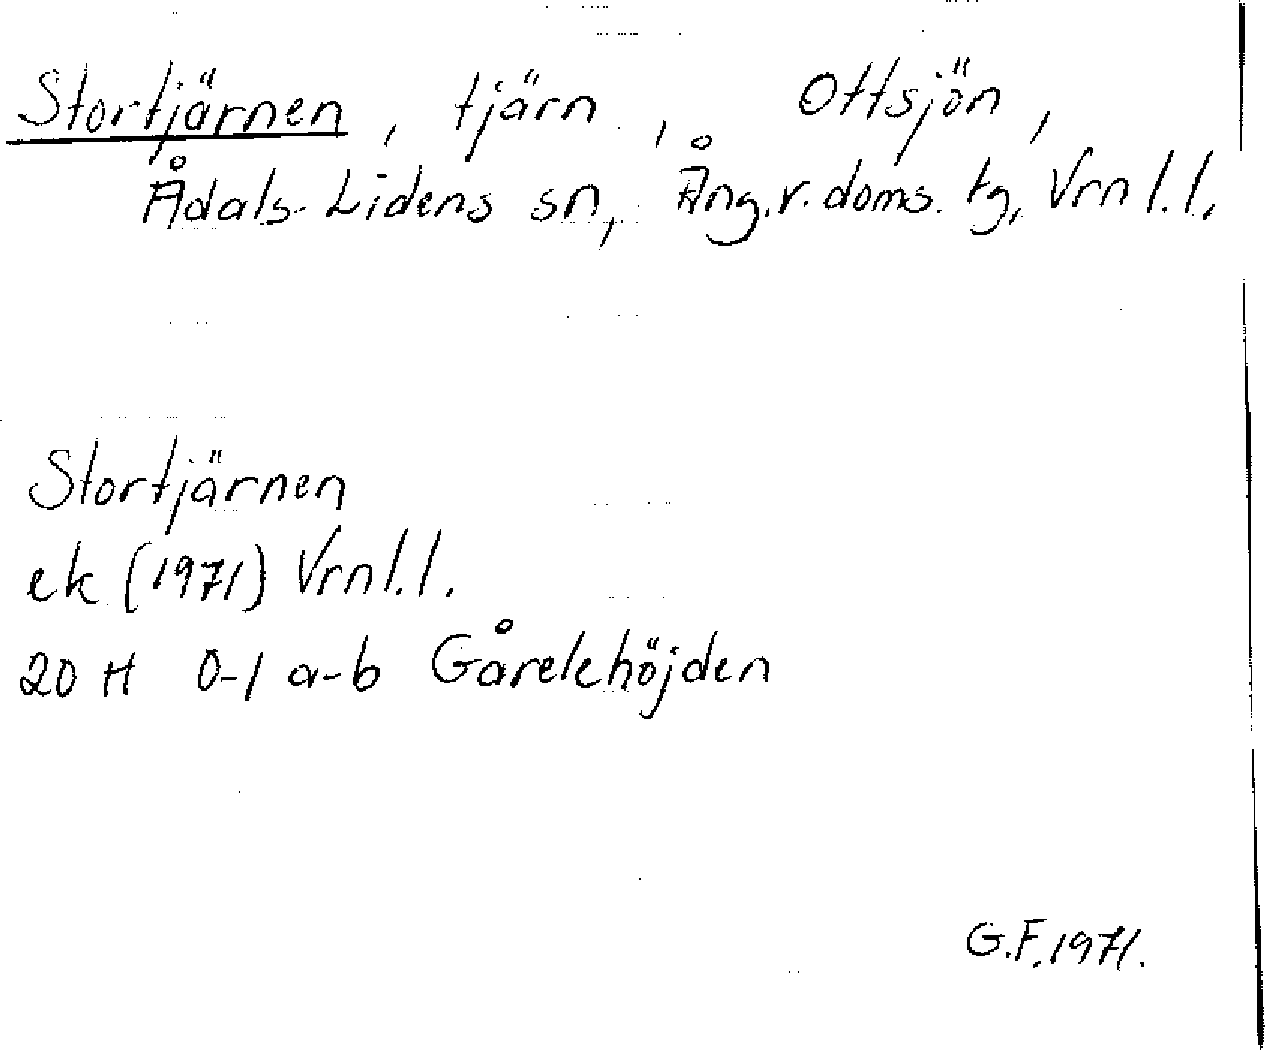 Stortjärnen, tjärn, Ottsjön,
Ådals-Lidens sn, Ång.v.doms.tg, Vrn l.l.
Stortjärnen
ek (1971) Vrn l.l.
20 H 0-1 a-b Gårelehöjden
G.F. 1971.